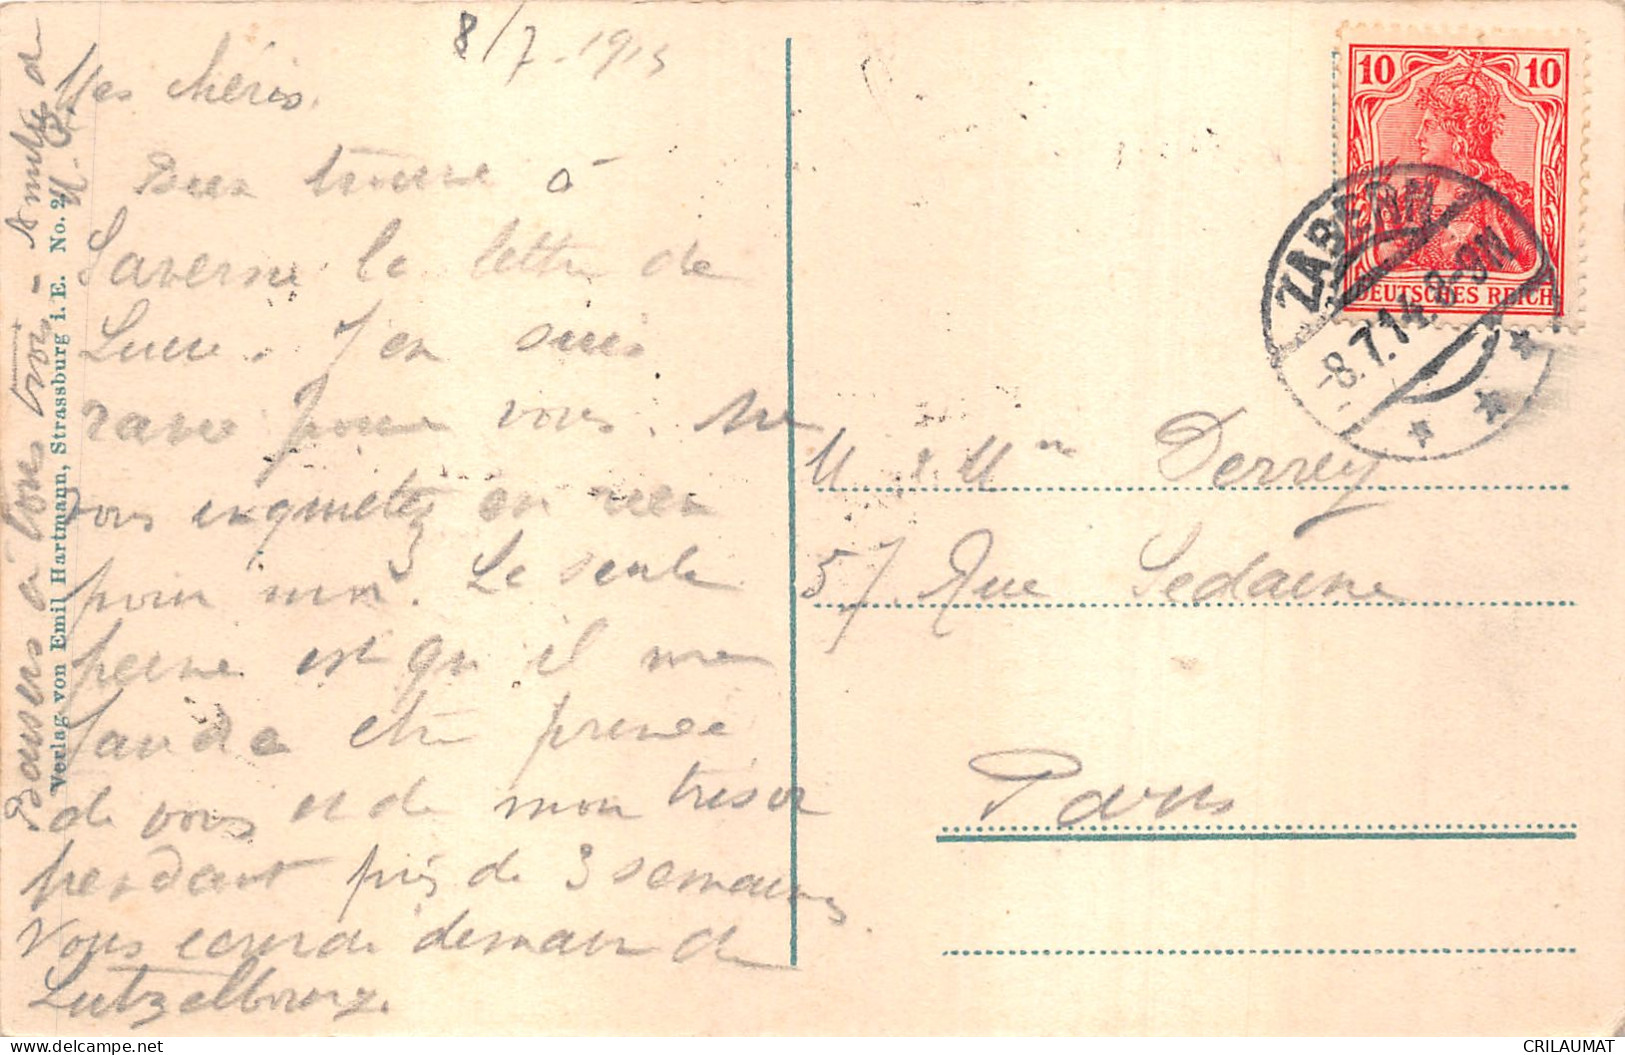 8/7. 1914
Mes chéris.
Bien trouvé à
Saverne la lettre de
Lucie. J'en suis
ravie pour vous. Ne
vous inquiétez en rien
pour moi. La seule
peine est qu'il me
faudra être privée
de vous et de mon trésor
pendant près de 3 semaines
Vous écrirai demain de
Lutzelbourg.
Baisers à tous trois - Amitiés à
Verlag von Emil Hartmann, Strassburg i. E. No. 2
10 10
DEUTSCHES REICH
ZABERN
-8.7.14. 8-9N
M. & Mme Derrey
57 Rue Sedaine
Paris
CRILAUMAT